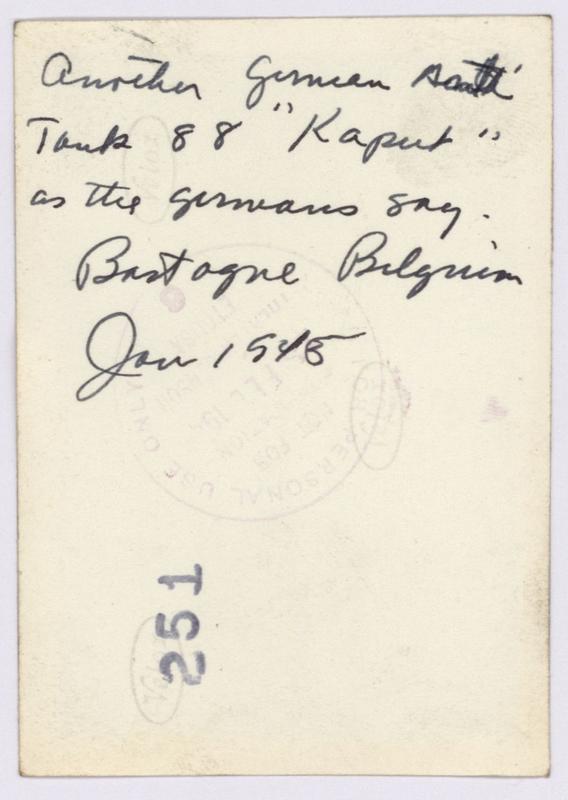 Another German Anti
Tank 88 "Kaput"
as the Germans say.
Bastogne Belgium
Jan 1945
251
PERSONAL USE ONLY
NOT FOR